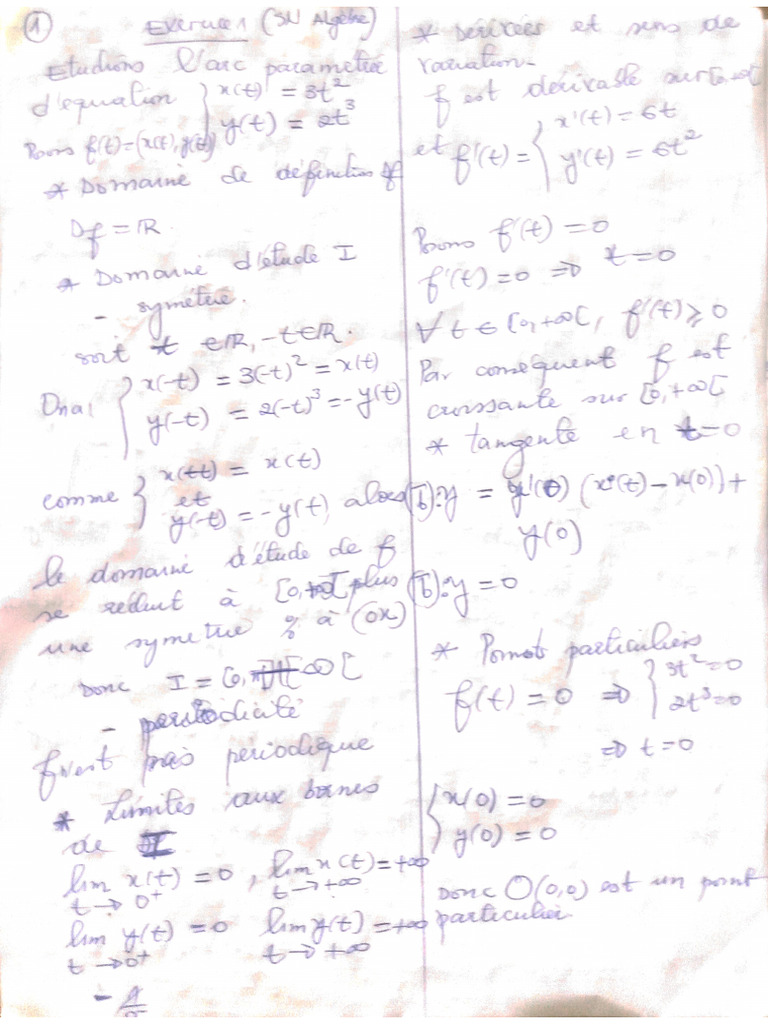 ① Exercice 1 (SN Algèbre)
Etudions l'arc paramétré
d'équation { x(t) = 3t²
y(t) = 2t³
Posons f(t)=(x(t), y(t))
* Domaine de définition
Df = IR.
* Domaine d'étude I
- symétrie.
soit t ∈ IR, -t ∈ IR.
Ona: { x(-t) = 3(-t)² = x(t)
y(-t) = 2(-t)³ = -y(t)
comme { x(-t) = x(t)
et
y(-t) = -y(t) alors
le domaine d'étude de f
se réduit à [0,+∞[ plus
une symétrie % à (Ox)
Donc I = [0, +∞[
- periodicité
f n'est pas periodique
* Limites aux bornes
de I
lim x(t) = 0 , lim x(t) = +∞
t → 0⁺ t → +∞
lim y(t) = 0 lim y(t) = +∞
t → 0⁺ t → +∞
-
* Dérivées et sens de
variation-
f est dérivable sur [0,+∞[
et f'(t) = { x'(t) = 6t
y'(t) = 6t²
Posons f'(t) = 0
f'(t) = 0 ⇒ t = 0
∀ t ∈ [0, +∞[, f'(t) ⩾ 0
Par conséquent f est
croissante sur [0, +∞[
* tangente en t=0
(T): y = y'(0) (x(t) - x(0)) +
y(0)
(T): y = 0
* Points particuliers
f(t) = 0 ⇒ { 3t² = 0
2t³ = 0
⇒ t = 0
{ x(0) = 0
y(0) = 0
Donc O(0,0) est un point
particulier.